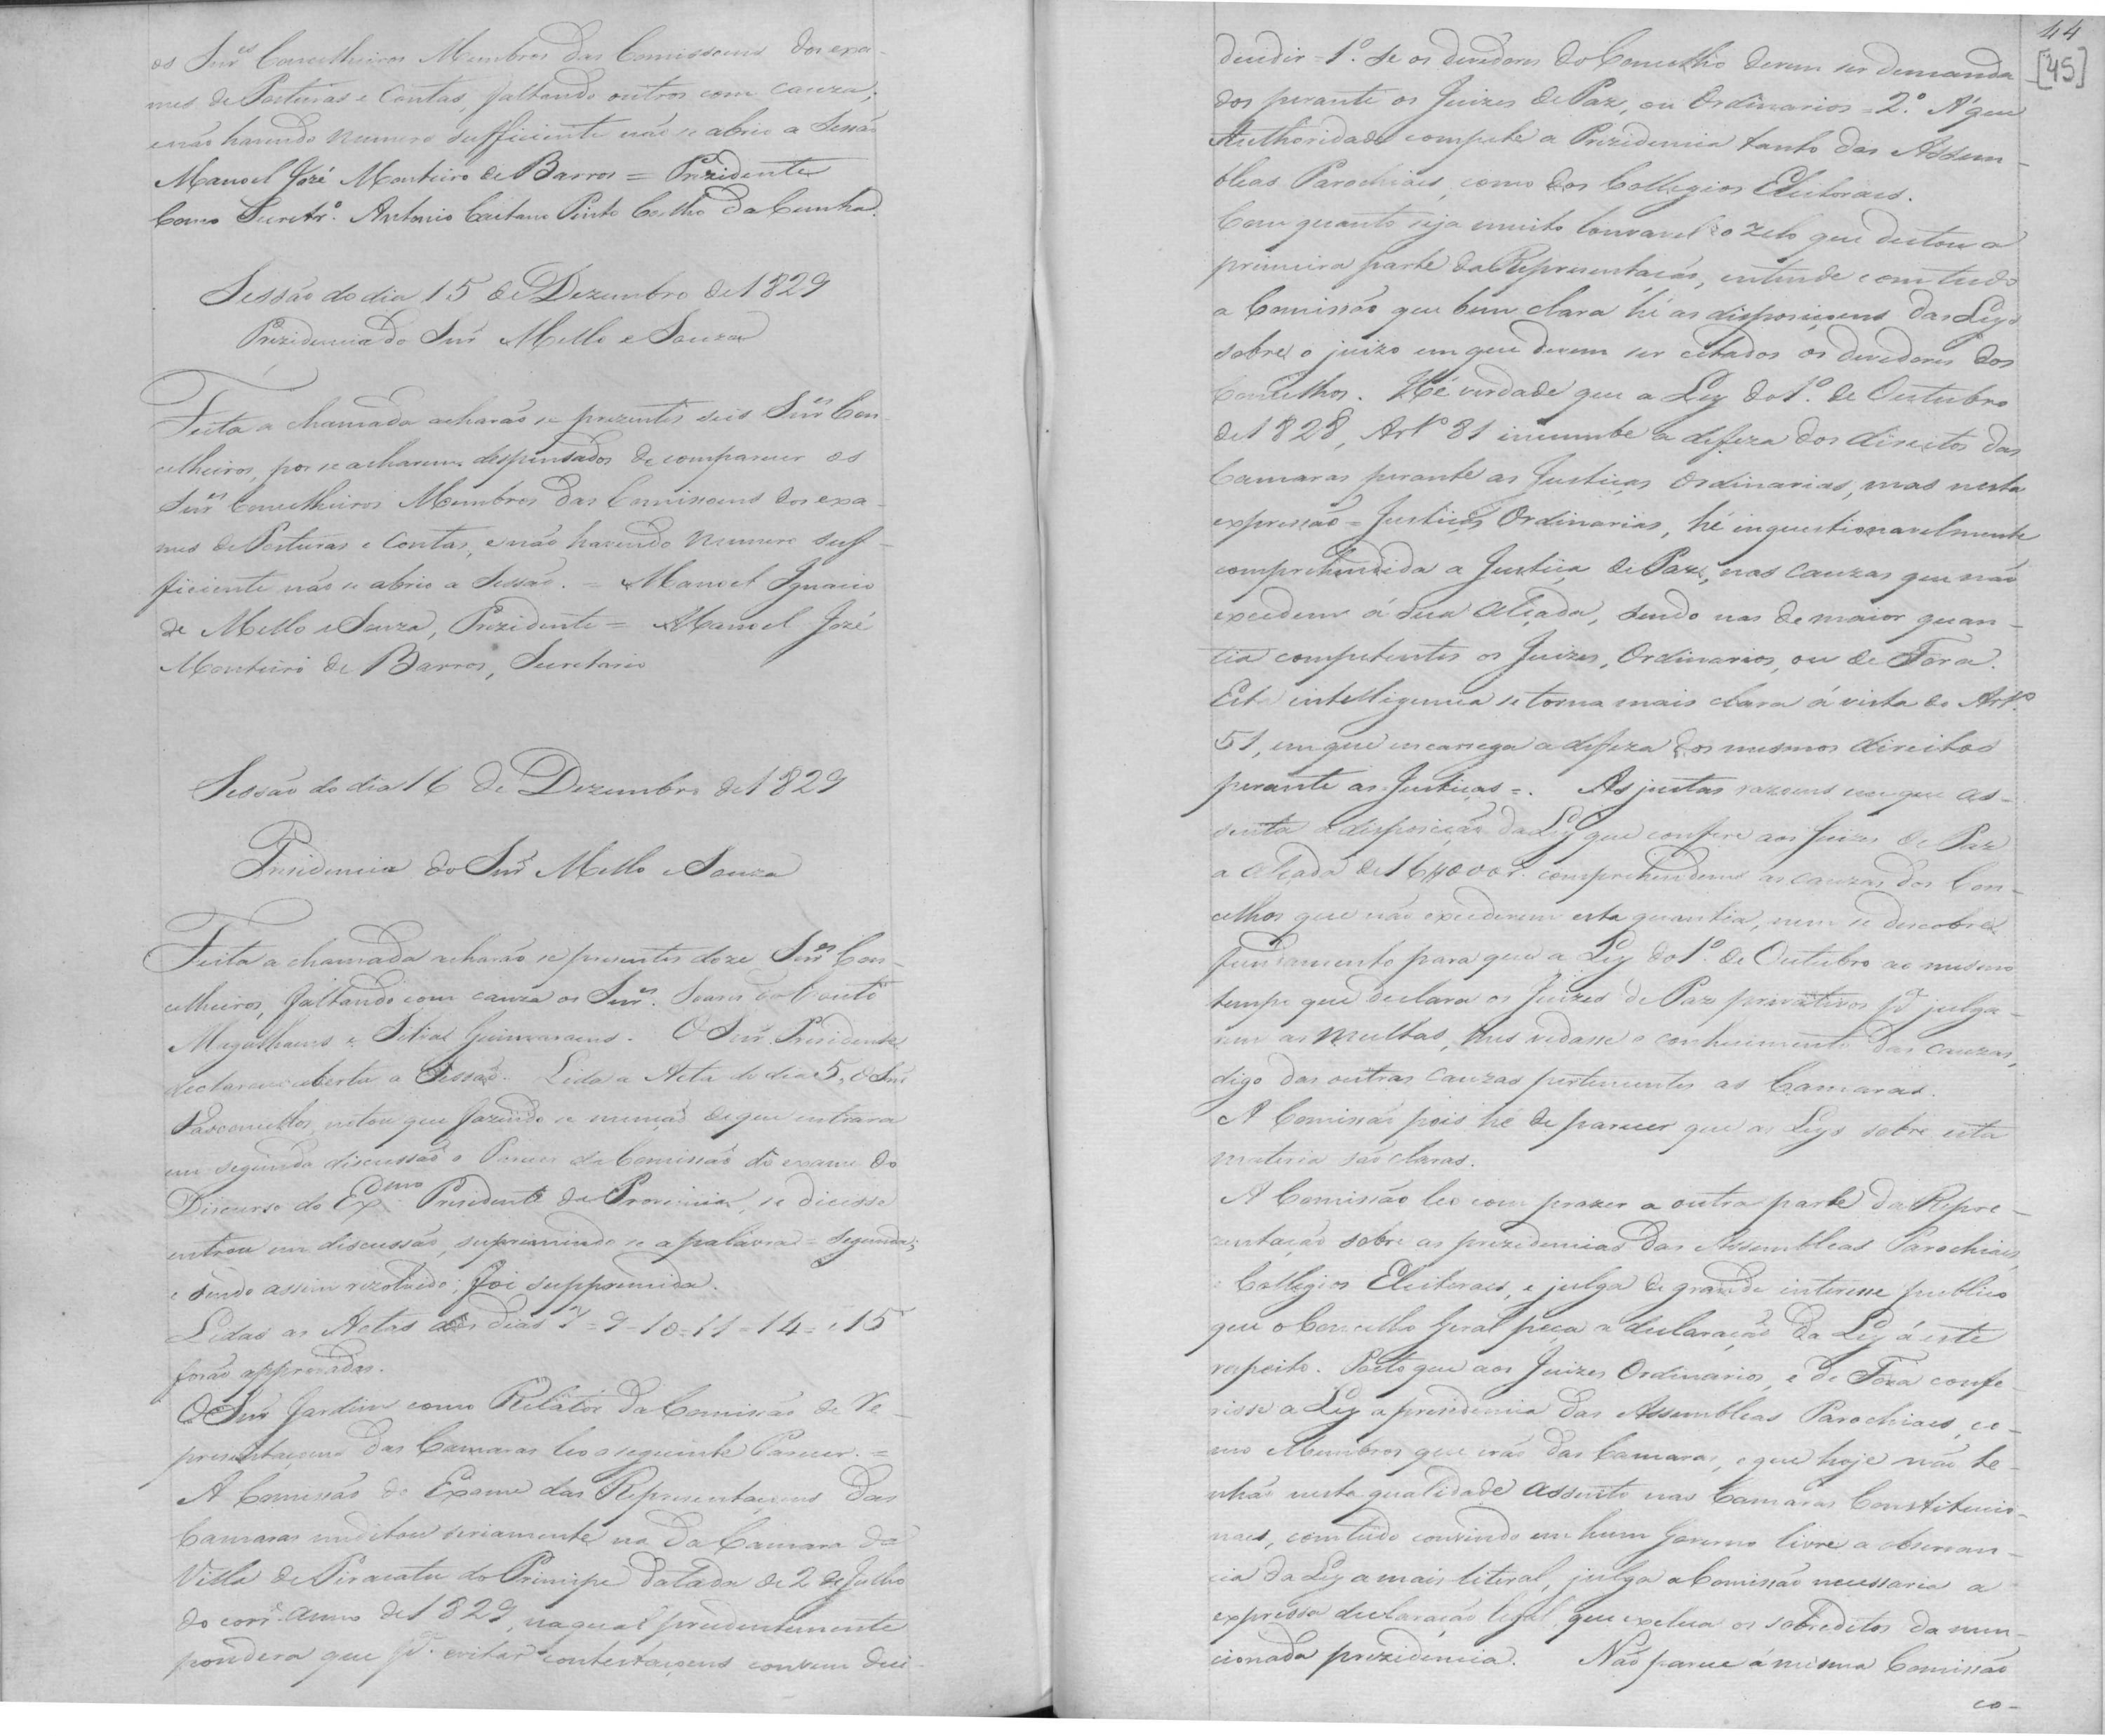 os Sñr.es Concelheiros Membros das Comissoens dos exa-
mes de Posturas e Contas, faltando outros com cauza;
e não havendo numero sufficiente não se abrio a Sessão
Manoel José Monteiro de Barros = Prezidente
Como Secretr.º Antonio Caetano Pinto Coelho da Cunha.
Sessão do dia 15 de Dezembro de 1829
Prezidencia do Sñr Mello e Souza
Feita a chamada acharão se prezentes seis Sñr.es Con-
celheiros, por se acharem dispensados de comparecer os
Sñr.es Concelheiros Membros das Comissoens dos exa-
mes de Posturas e Contas, e não havendo numero suf-
ficiente não se abrio a Sessão. = Manoel Ignacio
de Mello e Souza, Prezidente = Manoel José
Monteiro de Barros, Secretario
Sessão do dia 16 de Dezembro de 1829
Presidencia do Sñr Mello e Souza
Feita a chamada acharão se presentes doze Sñr.es Con-
celheiros, faltando com cauza os Sñr.es Soares do Couto
Magalhaens e Guimaraens. O Sñr. Presidente
declarou aberta a Sessão. Lida a Acta do dia 5, o Sñr
Vasconcellos notou que fazendo se menção de que entrara
em segunda discussão o Parecer da Comissão do exame do
Discurso do Ex.mo Presidente da Provincia, se dicesse
entrou em discussão, suprimindo se a palavra = segunda;
e sendo assim rezolvido; foi supprimida.
Lidas as Actas dos dias 7 = 9 = 10 = 11 = 14 = e 15
forão approvadas.
O Sñr Jardim como Relator da Comissão de Re-
presentaçoens das Camaras leo o seguinte Parecer. =
A Comissão do Exame das Representaçoens das
Camaras meditou seriamente na da Camara da
Villa de Piracatu do Principe datada de 2 de Julho
do corr.e anno de 1829, na qual prudentemente
pondera que p.ª evitar contestaçoens convem deci-
44
[45]
decidir = 1º. Se os devedores do Concelho devem ser demanda
dos perante os Juizes de Paz, ou Ordinarios = 2.º A' que
Authoridade compete a Prezidencia tanto das Assem-
bleas Parochiaes, como dos Collegios Eleitoraes.
Com quanto seja muito louvavel o zelo que dictou a
primeira parte da Representação, entende comtudo
a Comissão que bem clara hé as disposiçoens das Leys
sobre o juizo em que devem ser citados os devedores dos
Concelhos. Hé verdade que a Ley do 1º. de Outubro
de 1828, Artº 81 incumbe a defeza dos direitos das
Camaras perante as Justiças Ordinarias, mas nesta
expressão = Justiças Ordinarias, hé inquestionavelmente
comprehendida a Justiça de Paz, nas cauzas que não
excedem á sua alçada, sendo nas de maior quan-
tia competentes os Juizes, Ordinarios, ou de Fora.
Esta intelligencia se torna mais clara á vista do Art.º
51, em que encarrega a defeza dos mesmos direitos
perante as Justiças =. As justas razoens em que as-
senta a disposição da Ley que confere aos Juizes de Paz
a alçada de 16$000 r. comprehendem as cauzas dos Con-
celhos que não excederem esta quantia, nem se descobre
fundamento para que a Ley do 1º. de Outubro ao mesmo
tempo que declara os Juizes de Paz privativos p.ª julga-
rem as multas, lhes vedasse o conhecimento das cauzas,
digo das outras cauzas pertencentes as Camaras.
A Comissão pois hé de parecer que as Leys sobre esta
materia são claras.
A Comissão leo com prazer a outra parte da Repre-
zentação sobre as prezidencias das Assembleas Parochiaes,
e Collegios Eleitoraes, e julga de grande interesse publico
que o Concelho Geral peça a declaração da Ley á este
respeito. Posto que aos Juizes Ordinarios, e de Fora confe
risse a Ley a presidencia das Assembleas Parochiaes, co-
mo Membros que erão das Camaras, e que hoje não te-
nhão nesta qualidade assento nas Camaras Constitucio-
naes, comtudo convindo em hum Governo livre a observan-
cia da Ley a mais literal, julga a Comissão necessaria a
expressa declaração legal, que exclua os sobreditos da men-
cionada prezidencia. Não parece á mesma Comissão
co-